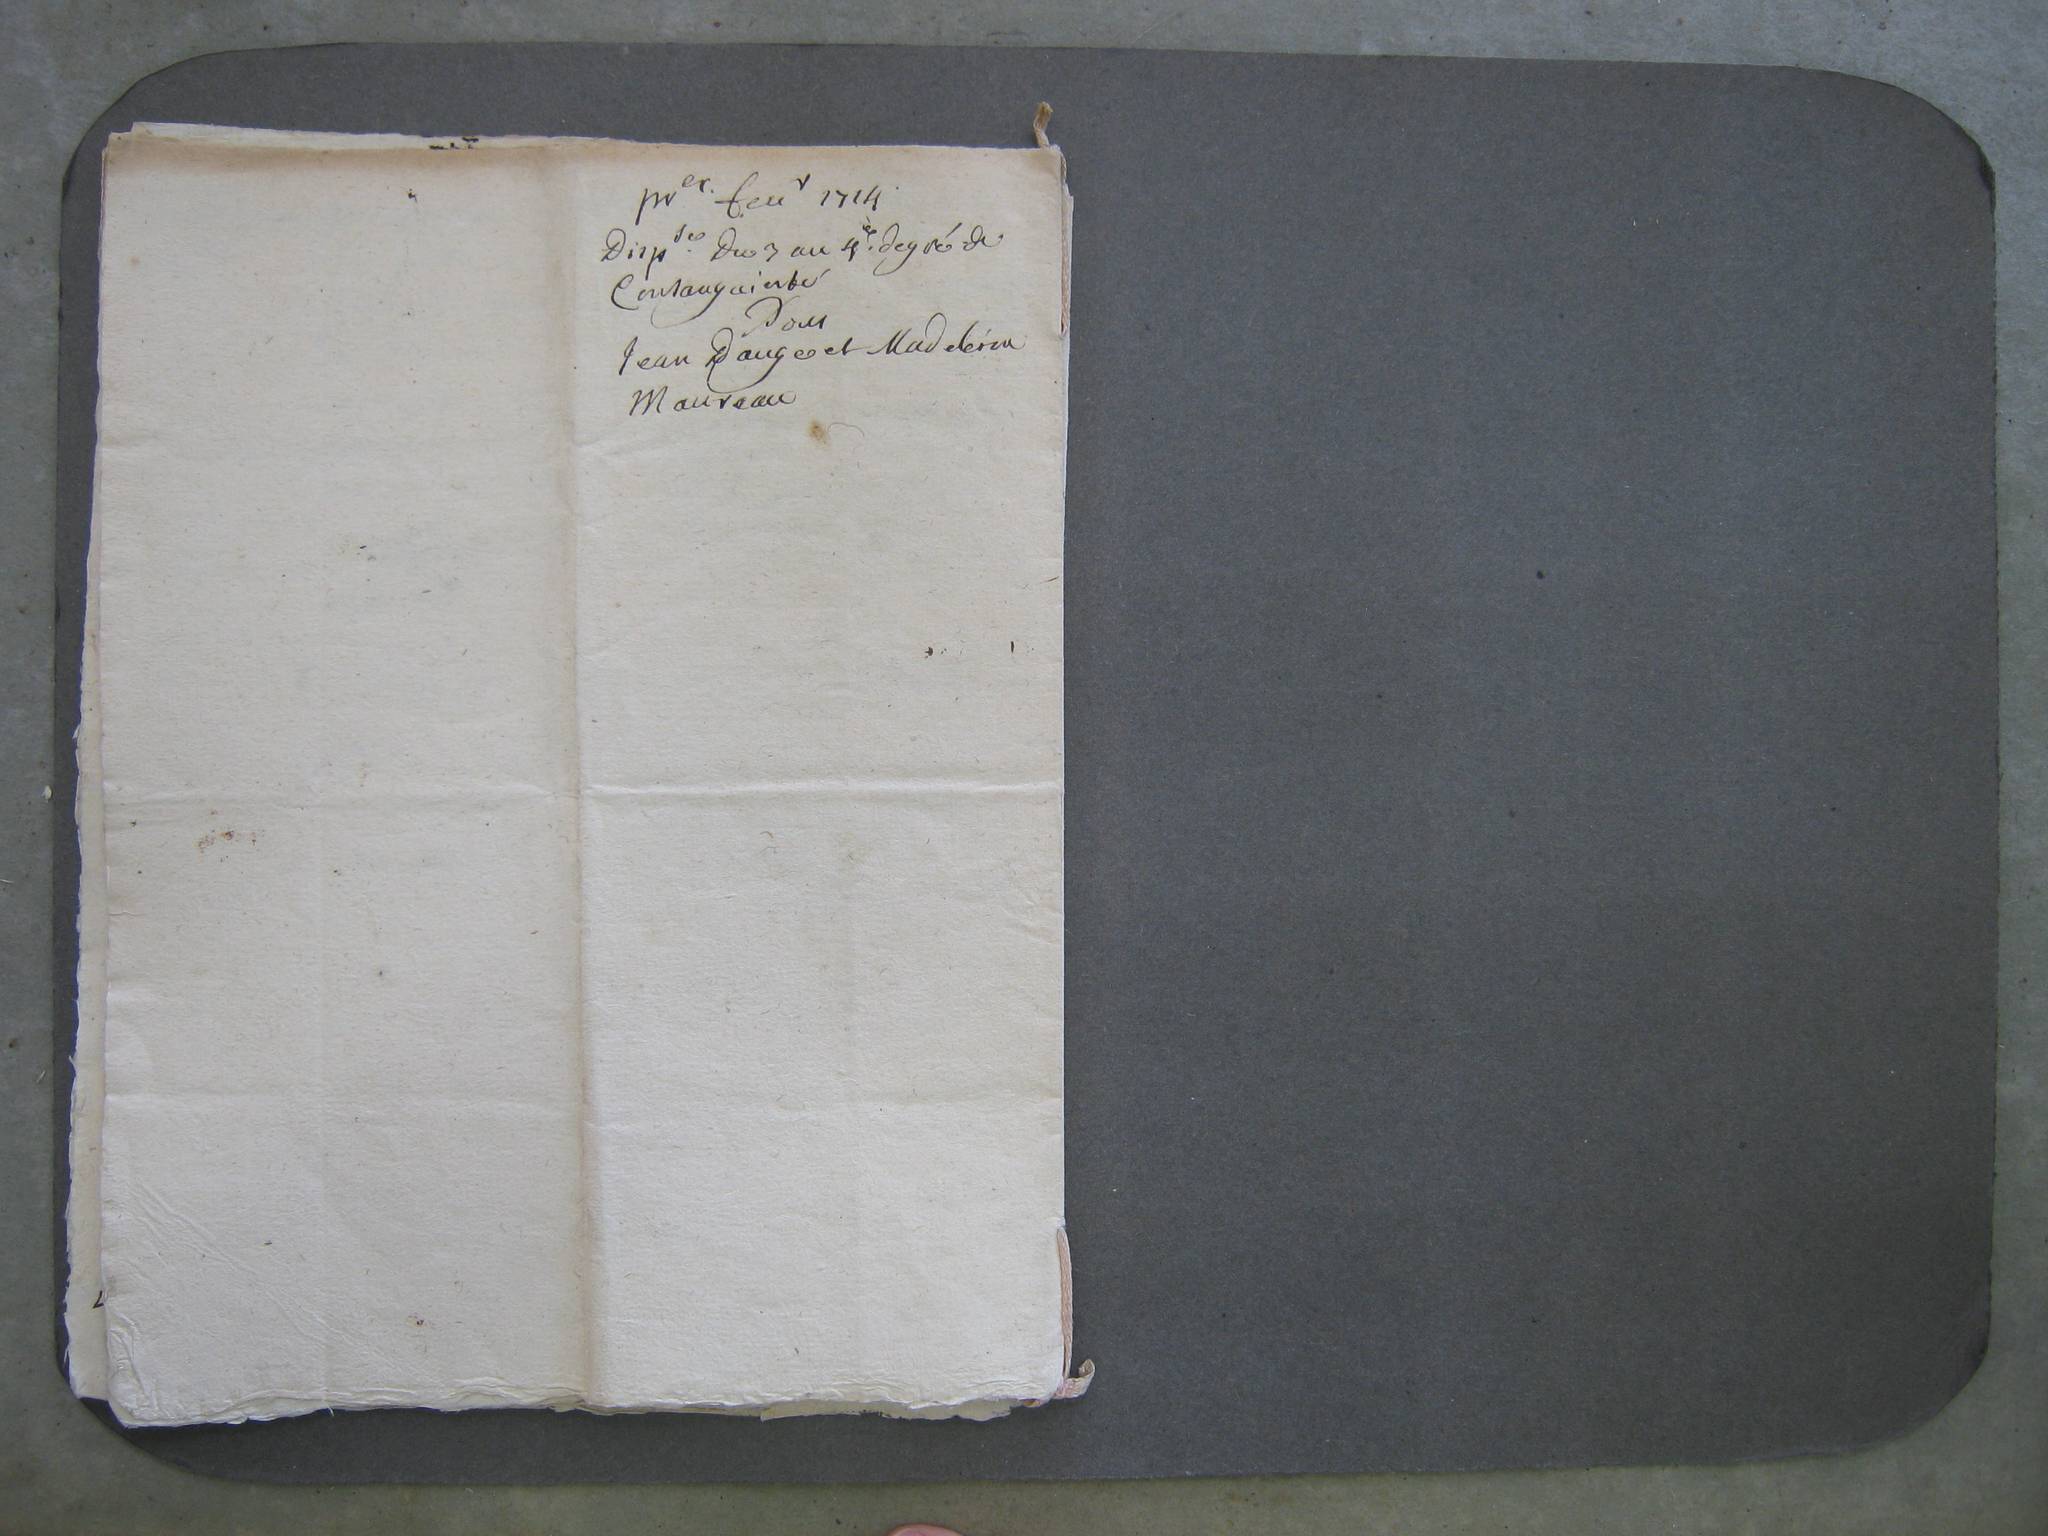 pr er. feur 1714
Disp se. Du 3 au 4e. degré de
Consanguinité
Pour
Jean Dauge et Madeleine
Maureau